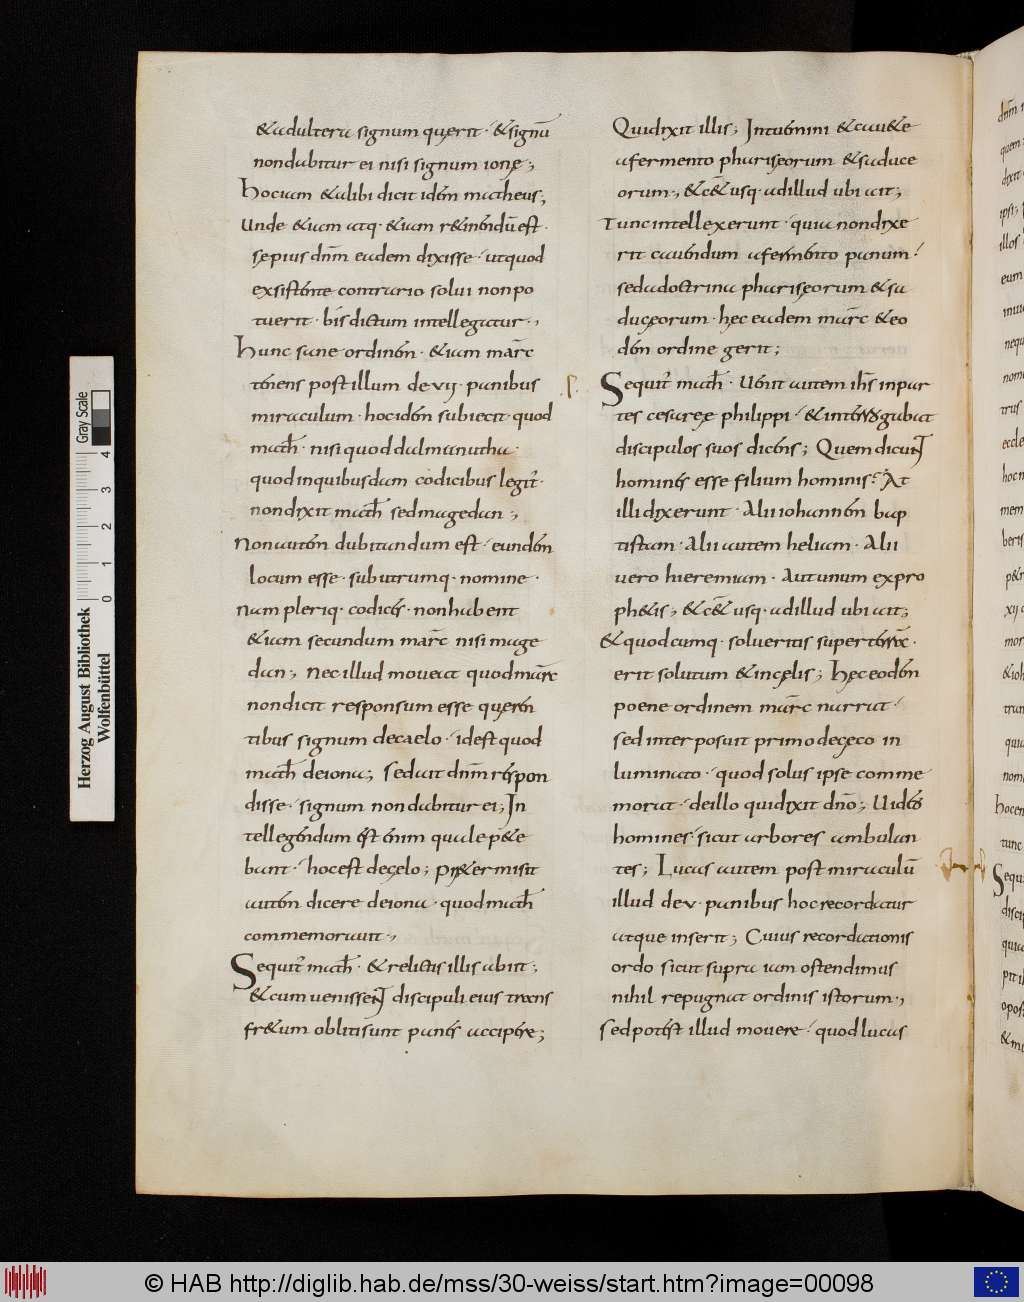 &adultera signum quęrit · &signū
nondabitur ei nisi signum ionę ;,
hoc iam &alibi dicit idem matheus ;,
Unde &iam atq· &iam r&inendū est ·
sępius dn̄m eadem dixisse · utquod
exsistente contrario solui nonpo
tuerit · bis dictum intellegatur ·,
hunc sane ordinem · &iam marc̄
tenens post illum de vii · panibus
miraculum · hocidem subiecit · quod
math̄ · nisi quod dalmanutha ·
quod inquibusdam codicibus legit͛ ·
nondixit math̄ sed magedan ·,
Non autem dubitandum est · eundem
locum esse · sub utrumq· nomine ·
nam pleriq· codices · non habent
&iam secundum marc̄ nisi mage
dan ·, nec illud moueat quod marc̄
nondicit responsum esse queren
tibus signum decaelo · idest quod
math̄ deiona ; sed ait dn̄m respon
disse · signum nondabitur ei ; In
tellegendum est enim quale p&e
bant · hocest decęlo ; pr&ermisit
autem dicere deiona · quod math̄
commemorauit ·,
Sequit͛ math̄ · &relictis illis abiit ;
&cum uenissent discipuli eius trans
fr&um obliti sunt panes accipere ;
Qui dixit illis ; Intuemini &caue&e
afermento pharisęorum &saduce
orum ·, &c& usq· adillud ubi ait ;
Tunc intellexerunt · quia nondixe
rit cauendum afermento panum ·
sed adoctrina pharisęorum &sa
ducęorum · hęc eadem marc̄ &eo
dem ordine gerit ;
Sequit͛ math̄ · Uenit autem ih̄s inpar
tes cesareę philippi · &interrogabat
discipulos suos dicens ; Quem dicunt
homines esse filium hominis ? At
illi dixerunt · Alii iohannem bap
tistam · Alii autem heliam · Alii
uero hieremiam · Aut unum expro
ph&is ; &c& usq· adillud ubi ait ;
&quodcumq· solueritis super terrā ·
erit solutum &incęlis ; hęc eodem
poene ordinem marc̄ narrat ·
sed interposuit primo decęco in
luminato · quod solus ipse comme
morat · deillo qui dixit dn̄o ; Uideo
homines · sicut arbores ambulan
tes ; Lucas autem post miraculū
illud de v· panibus hoc recordatur
atque inserit ; Cuius recordationis
ordo sicut supra iam ostendimus
nihil repugnat ordinis istorum ·,
sed potest illud mouere · quod lucas
Gray Scale
0 1 2 3 4
Herzog August Bibliothek
Wolfenbüttel
© HAB http://diglib.hab.de/mss/30-weiss/start.htm?image=00098